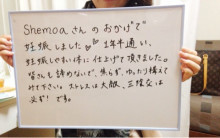 Shemoaさんのおかげで
妊娠しました 1年半通い、
妊娠しやすい体に仕上げて頂きました。
皆さんも諦めないで、焦らず、ゆったり構えて
みて下さい。ストレスは大敵、三陰交は
必ず！です。